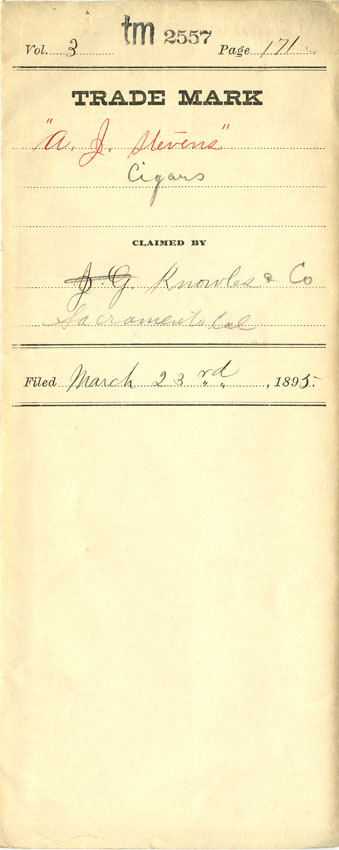 Vol. 3 tm 2557 Page 171
TRADE MARK
"A. J. Stevens"
Cigars
CLAIMED BY
J. G Knowles & Co
Sacramento Cal
Filed March 23rd, 1895.